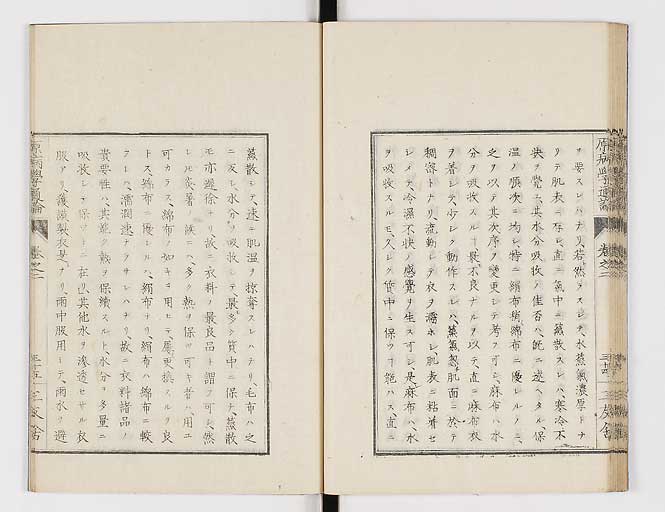 原病學通論
卷之二
三十四
三友舍
ヲ要スレハナリ、若シ然ラスシテ、水蒸氣濃厚トナ
リテ肌表ニ存シ、直ニ氣中ニ蒸散スレハ、寒冷不
快ヲ覺ユ、其水分吸收ノ佳否ハ、既ニ述ヘタル、保
溫ノ順次ニ均シ、特ニ絹布ハ綿布ニ優レルノミ、
之ヲ以テ其次序ヲ變更シテ考フ可シ、麻布ハ水
分ヲ吸收スル最不良ナルヲ以テ、直ニ麻布衣
ヲ著シテ、少シク動作スレハ、蒸氣忽肌面ニ於テ
稠密トナリ、流動シテ衣ヲ濡ホシ肌表ニ粘著セ
シメテ、冷濕不快ノ感覺ヲ生ス可シ、是麻布ハ、水
ヲ吸收スルモ、久シク質中ニ保ツコト能ハス、直ニ
蒸散シテ、速ニ肌溫ヲ掠奪スレハナリ、毛布ハ之
ニ反シ、水分ヲ吸收シテ最多ク質中ニ保チ、蒸散
モ亦遲徐ナリ、故ニ衣料ノ最良品ト謂フ可シ、然
レ𪜈炎暑ノ候ニハ、多ク熱ヲ保ツ可キ者ハ、用ユ
可カラス、綿布ノ如キヲ用ヒテ、屢更換スルヲ良
トス、綿布ニ優レルハ、絹布ナリ、絹布ハ綿布ニ較
テレハ、濡潤速ナラサレハナリ、故ニ衣料諸品ノ
貴要性ハ、其能ク熱ヲ保續スルト、水分ヲ多量ニ
吸收シテ保ツトニ在リ、其他水ヲ滲透セサル衣
服アリ、護謨製衣是ナリ、雨中服用シテ、雨水ヲ避
原病學通論
卷之二
三十五
三友舍